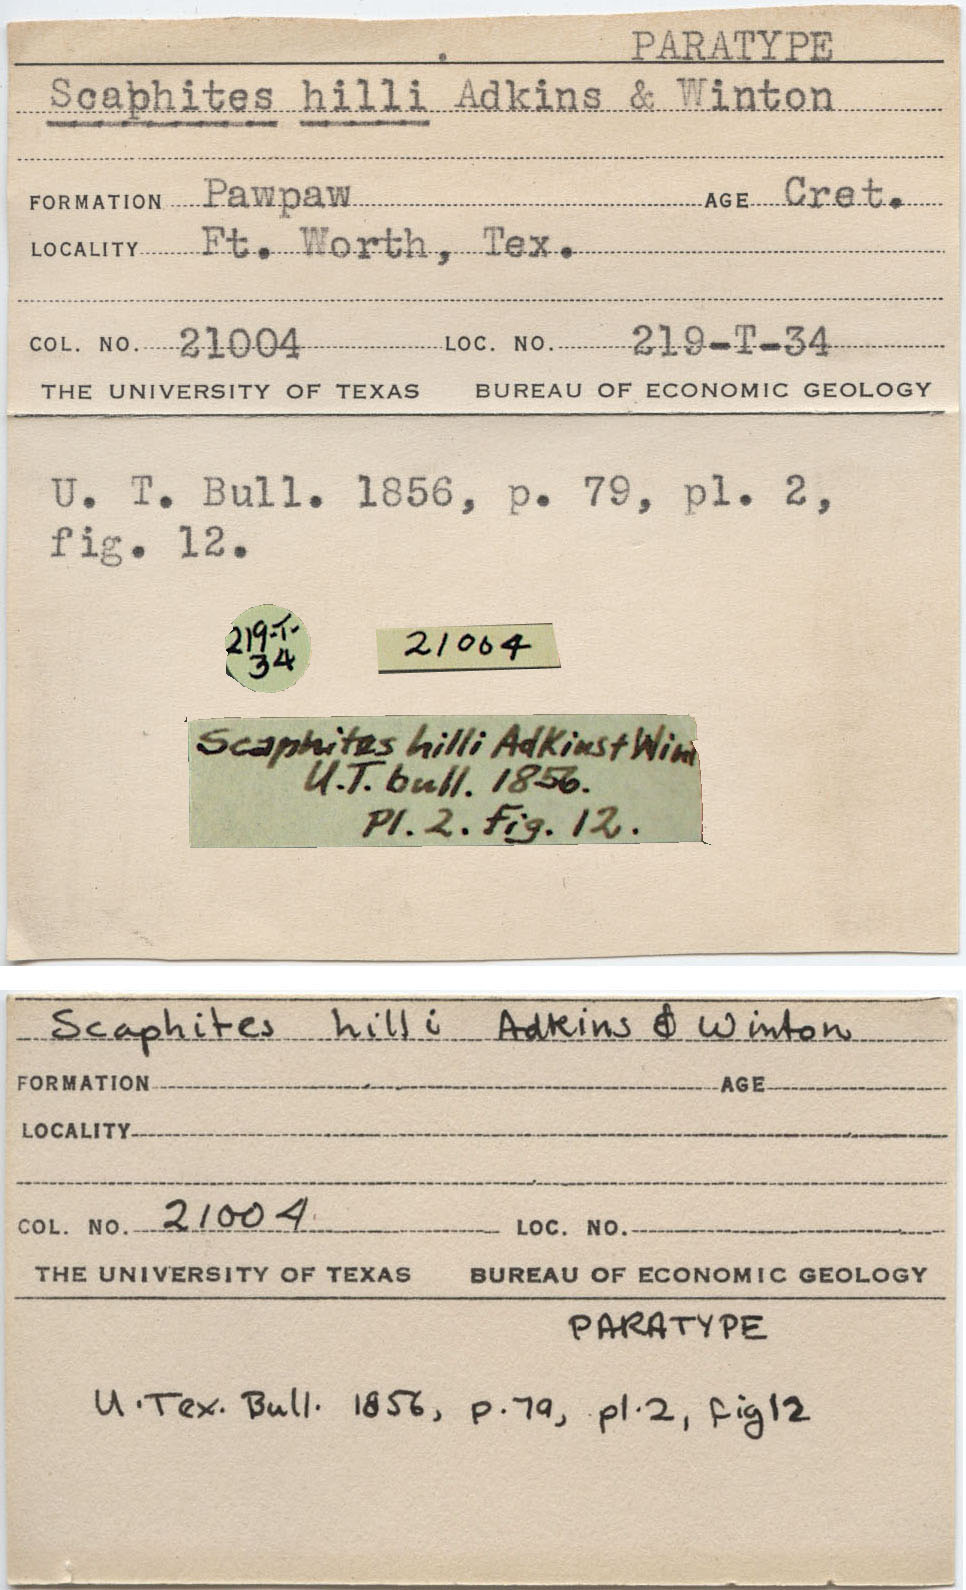 PARATYPE
Scaphites hilli Adkins & Winton
FORMATION Pawpaw AGE Cret.
LOCALITY Ft. Worth, Tex.
COL. NO. 21004 LOC. NO. 219-T-34
THE UNIVERSITY OF TEXAS BUREAU OF ECONOMIC GEOLOGY
U. T. Bull. 1856, p. 79, pl. 2,
fig. 12.
219-T-
34
21004
Scaphites hilli Adkins + Win
U.T. bull. 1856.
Pl. 2. Fig. 12.
Scaphites hilli Adkins & Winton
FORMATION AGE
LOCALITY
COL. NO. 21004 LOC. NO.
THE UNIVERSITY OF TEXAS BUREAU OF ECONOMIC GEOLOGY
PARATYPE
U. Tex. Bull. 1856, p. 79, pl. 2, fig 12